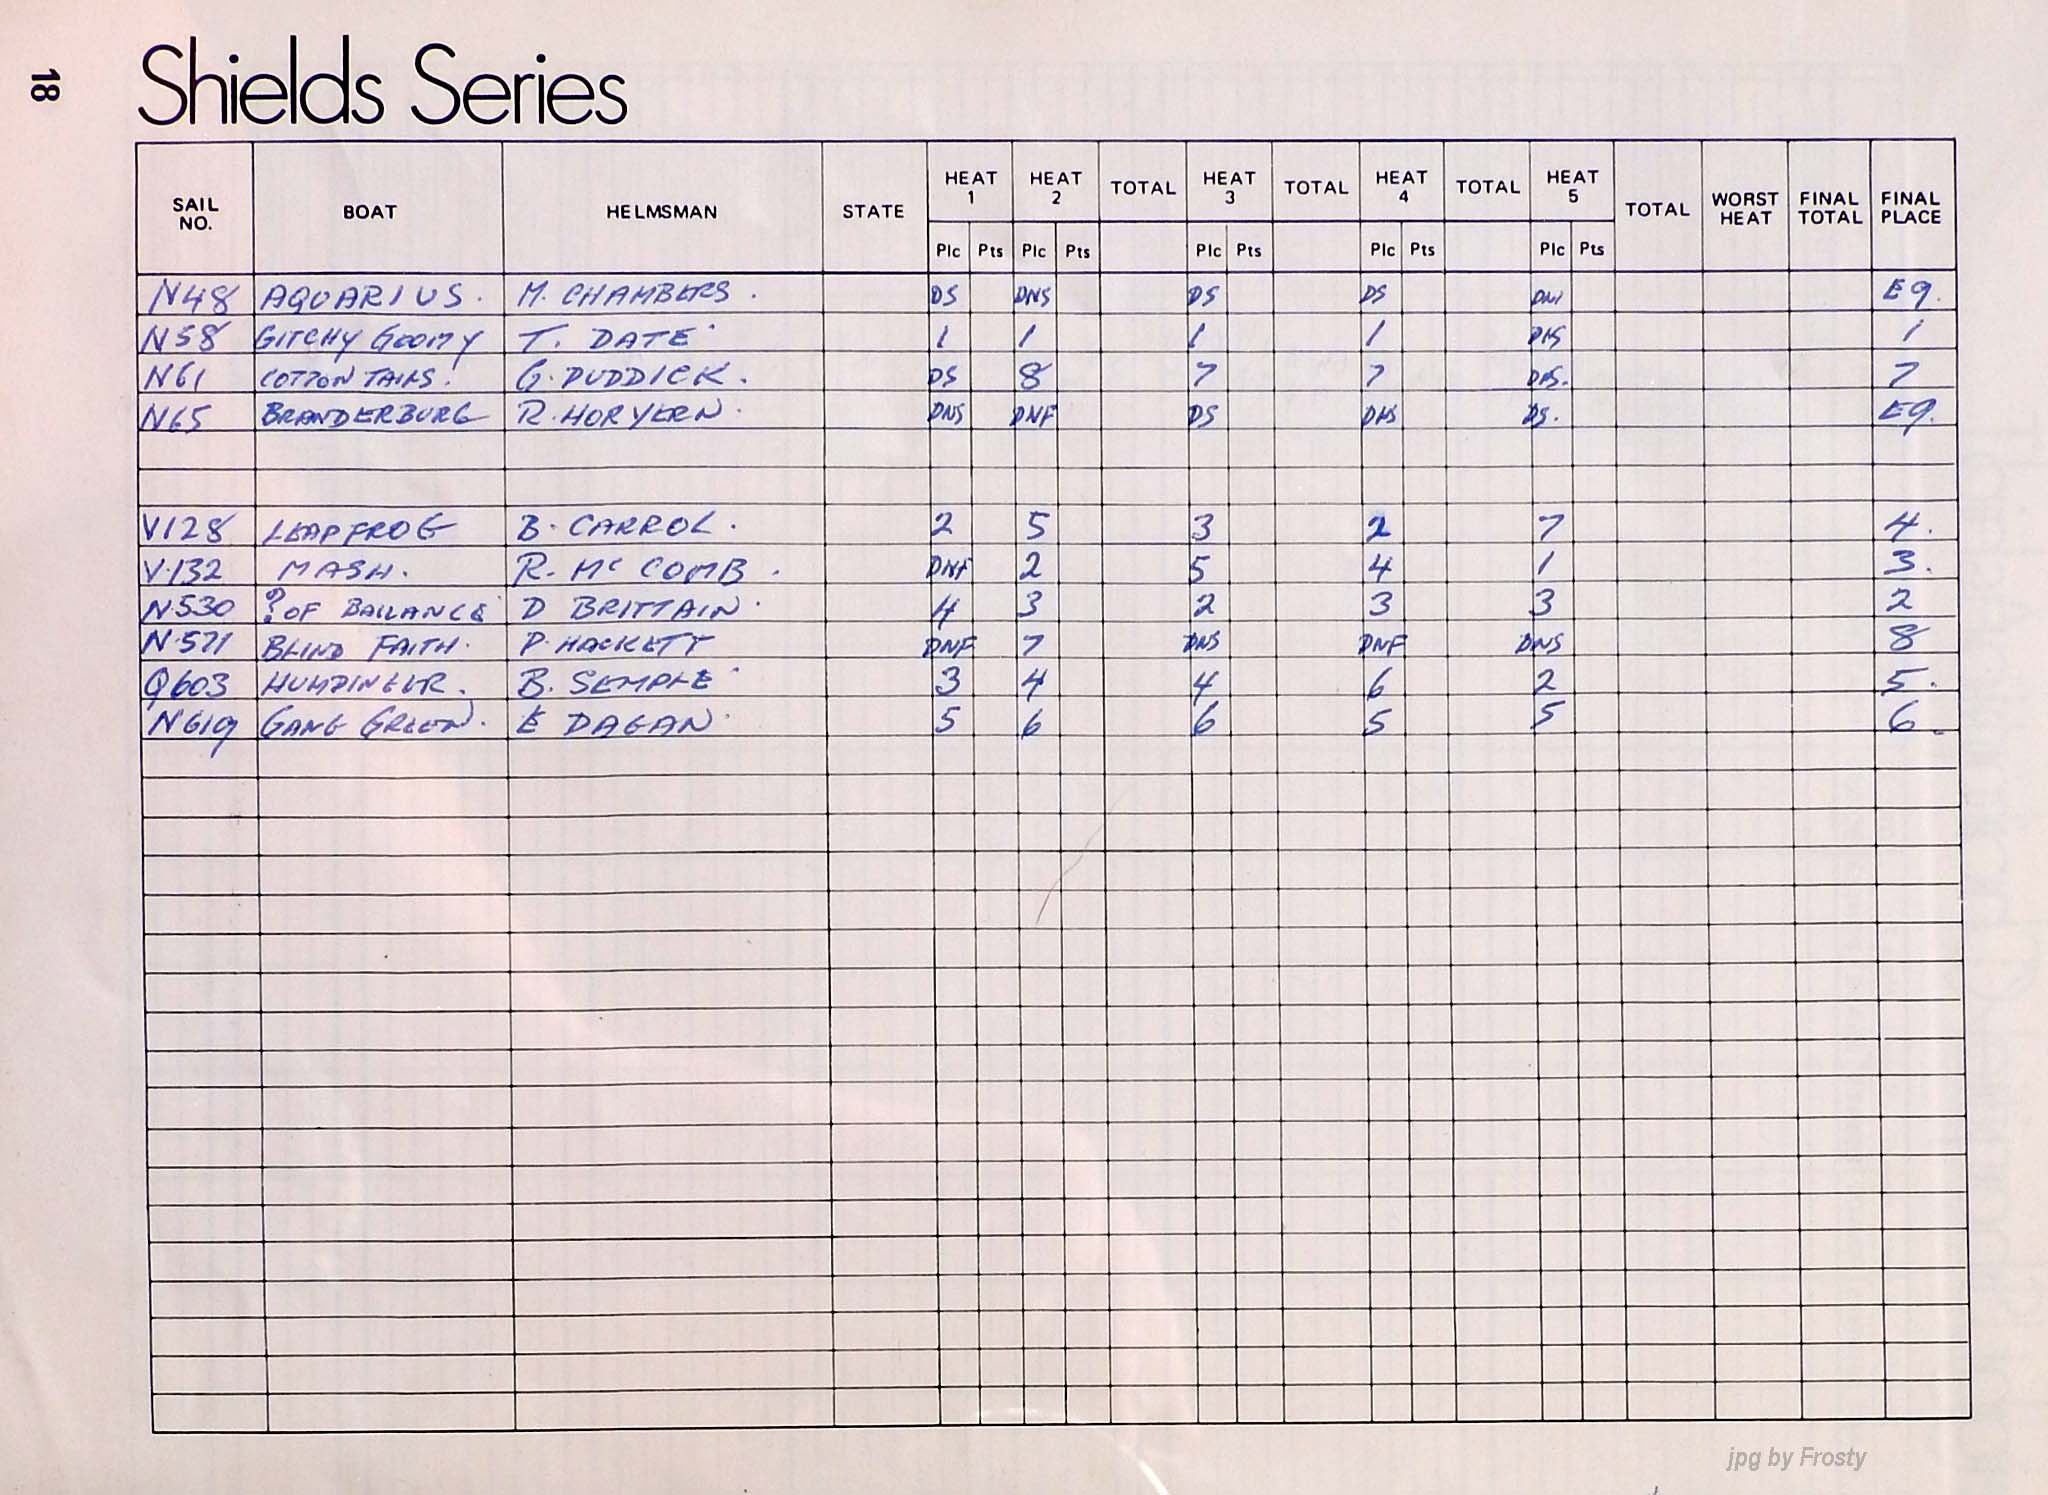 18
Shields Series
SAIL NO. BOAT HELMSMAN STATE HEAT 1 HEAT 2 TOTAL HEAT 3 TOTAL HEAT 4 TOTAL HEAT 5 TOTAL WORST HEAT FINAL TOTAL FINAL PLACE
Plc Pts Plc Pts Plc Pts Plc Pts Plc Pts
N48 AQUARIUS. M. CHAMBERS. DS DNS DS DS E9.
N58 GITCHY GOOMY T. DATE 1 1 1 1 DNS 1
N61 COTTON TAILS. G. DUDDICK. DS 8 7 7 DNS. 7
N65 BRANDERBURG R. HORYERN. DNS DNF DS DNS DS. E9.
V128 LEAPFROG B. CARROL. 2 5 3 2 7 4.
V.132 MASH. R. Mc COMB. DNF 2 5 4 1 3.
N530 ? OF BALLANCE D BRITTAIN. 4 3 2 3 3 2
N.571 BLIND FAITH. P. HACKETT DNF 7 DNS DNF DNS 8
Q603 HUMDINGER. B. SEMPLE 3 4 4 6 2 5.
N619 GANG GREEN. E DAGAN. 5 6 6 5 5 6.
jpg by Frosty